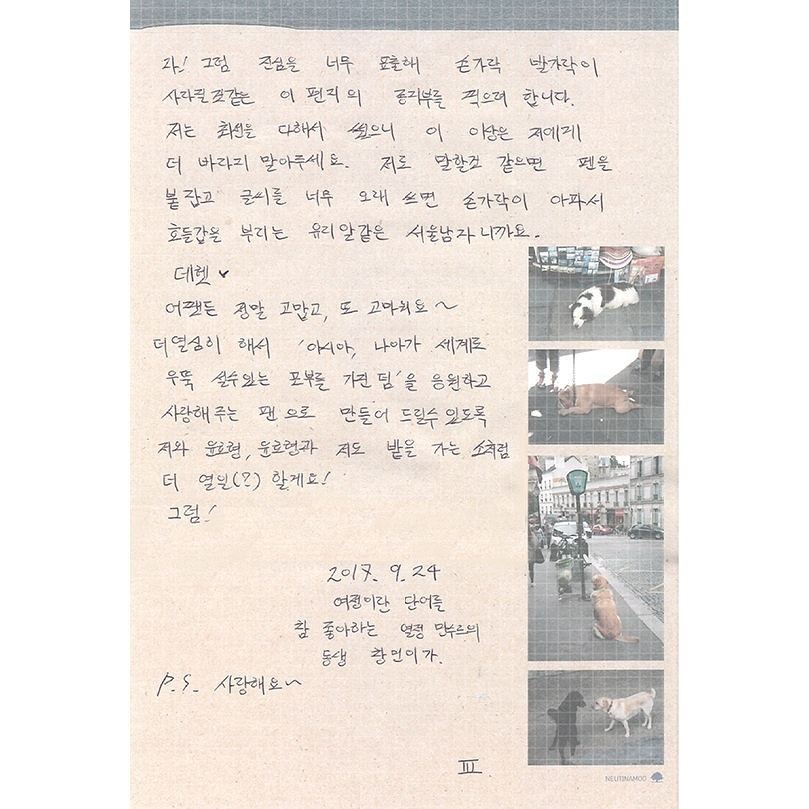 자! 그럼 진심을 너무 표출해 손가락 발가락이
사라질것같은 이 편지의 종지부를 찍으려 합니다.
저는 최선을 다해서 썼으니 이 이상은 저에게
더 바라지 말아주세요. 저도 말할것 같으면 펜을
붙잡고 글씨를 너무 오래 쓰면 손가락이 아파서
호들갑을 부리는 유리알같은 서울남자니까요.
데헷♥
어쨌든 정말 고맙고, 또 고마워요~
더열심히 해서 '아시아, 나아가 세계로
우뚝 설수있는 포부를 가진 팀'을 응원하고
사랑해주는 팬으로 만들어 드릴수 있도록
저와 윤호형, 윤호형과 저도 밭을 가는 소처럼
더 열일(?) 할게요!
그럼!
2017. 9. 24
열정이란 단어를
참 좋아하는 열정 만수르의
동생 창민이가.
P.S. 사랑해요~
III
NEUTINAMOO